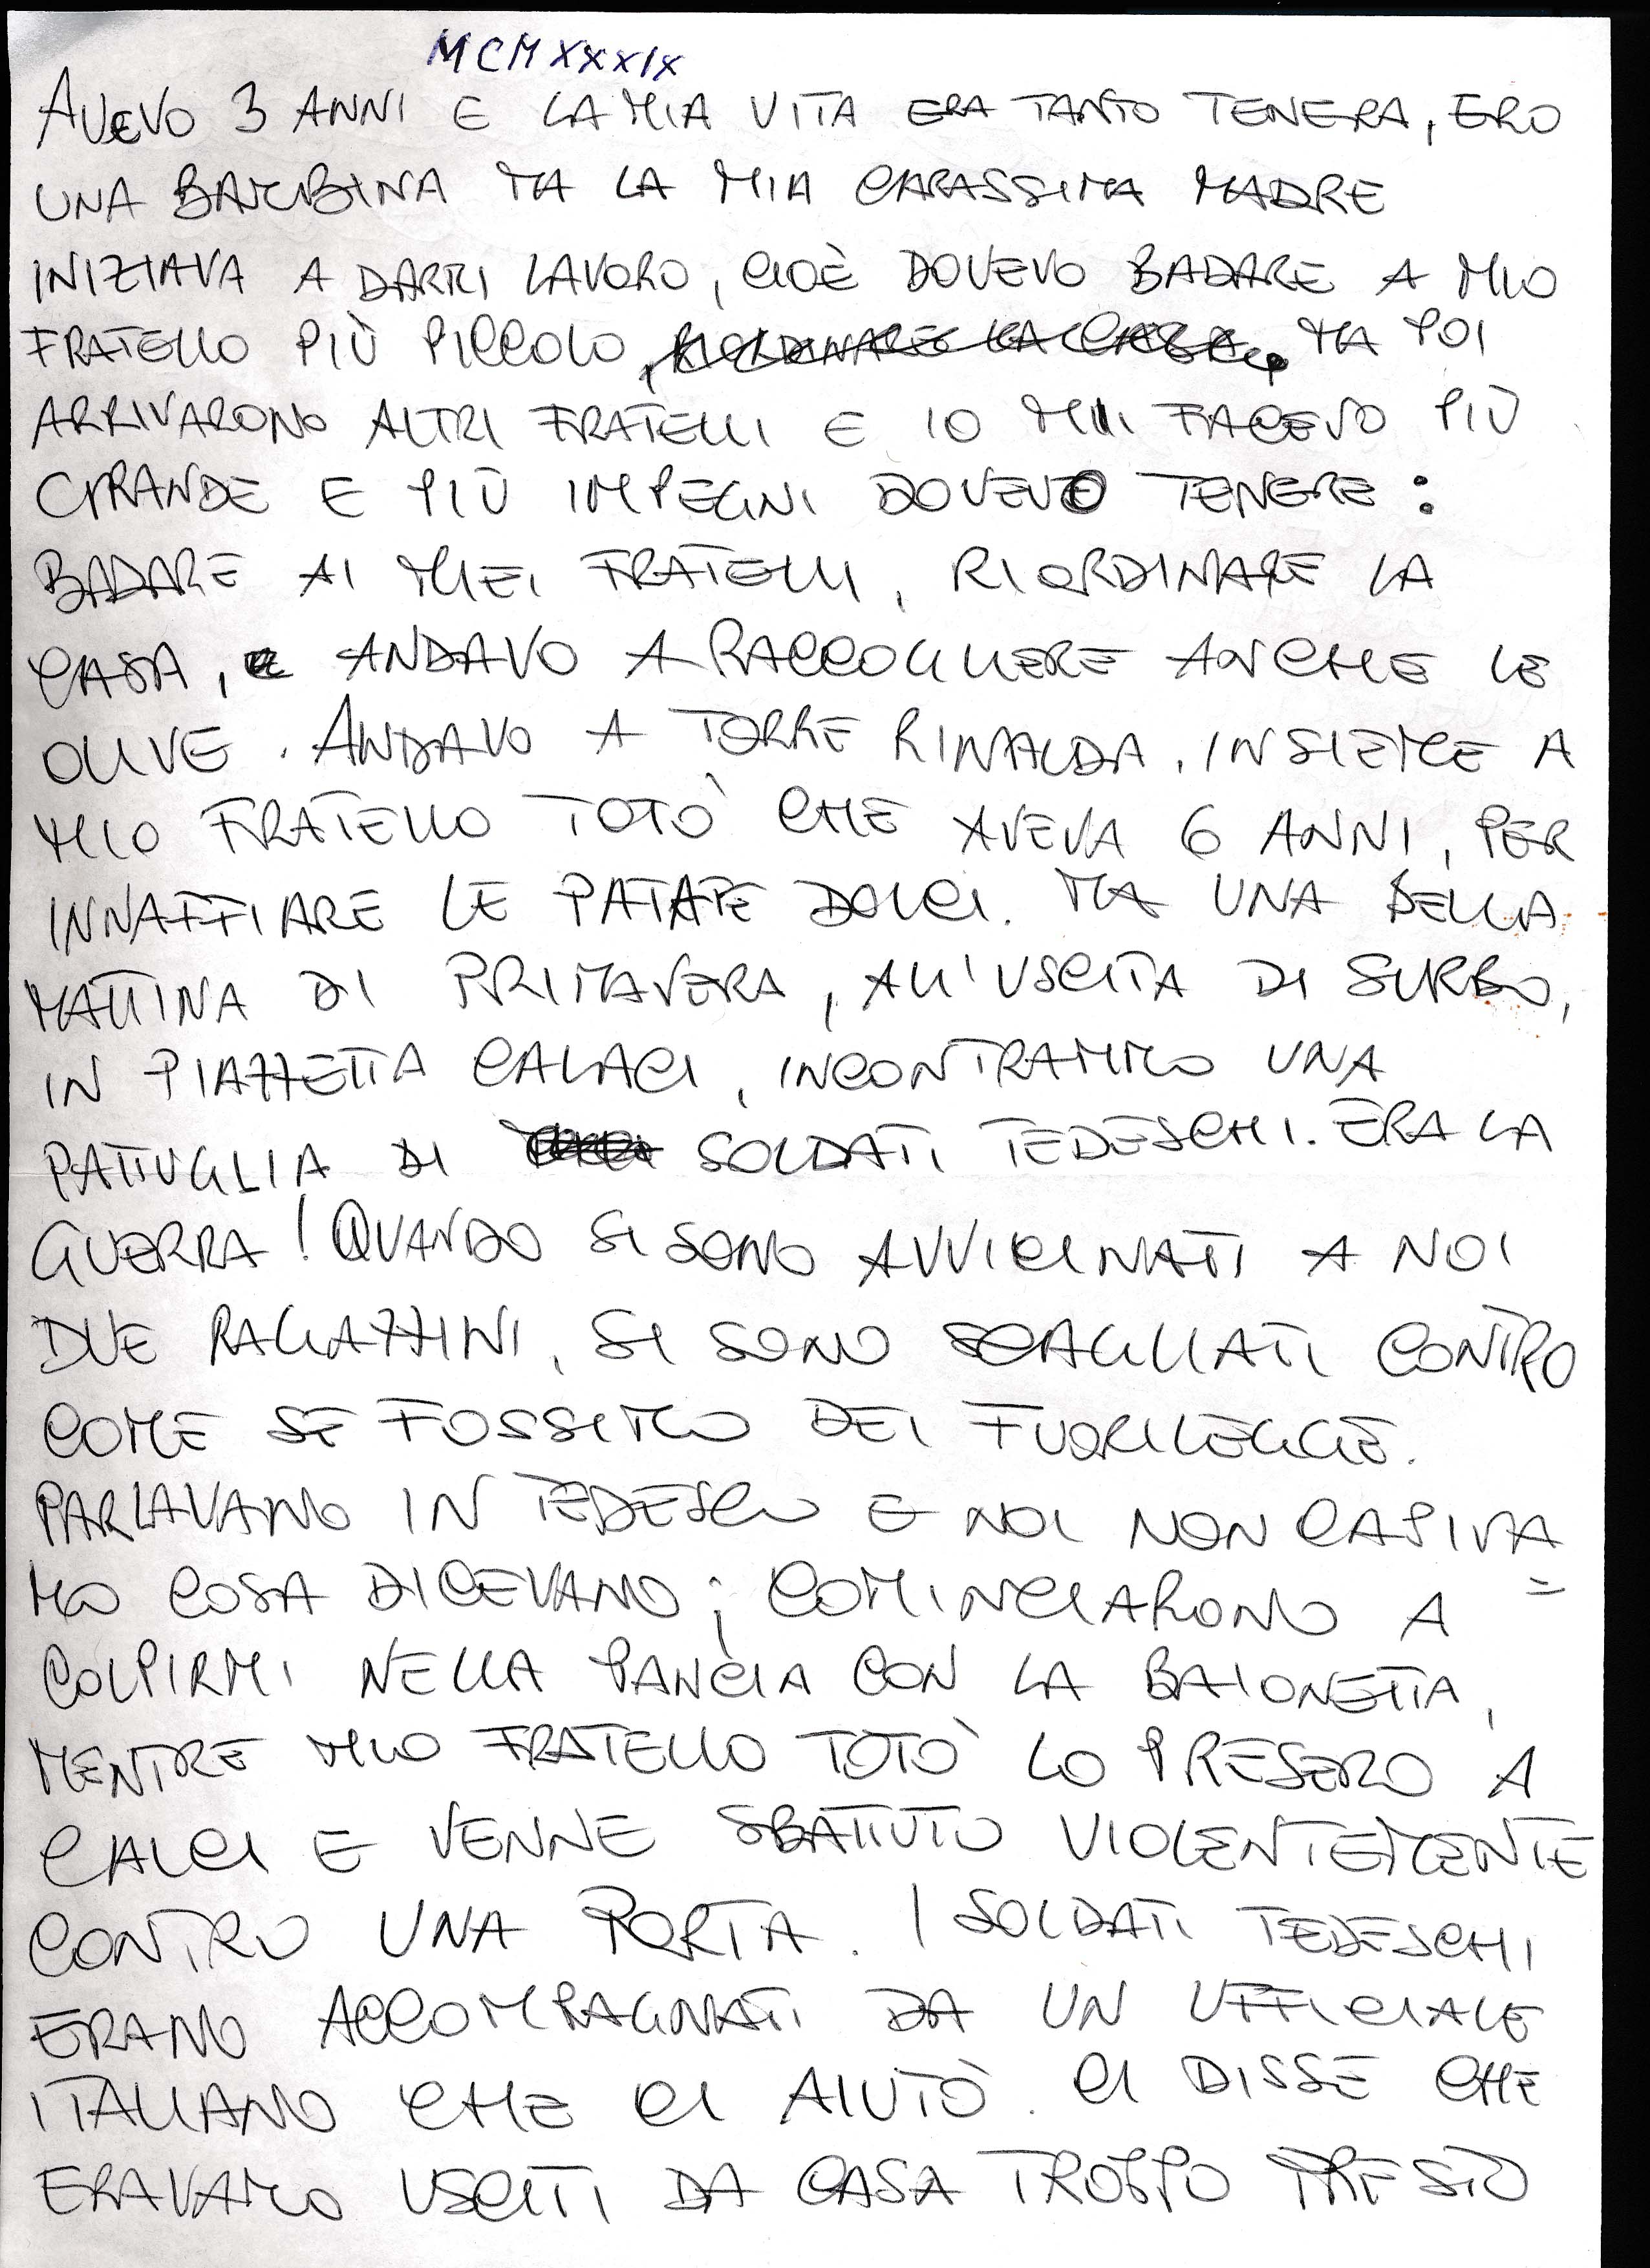 MCMXXXIX
AVEVO 3 ANNI E LA MIA VITA ERA TANTO TENERA, ERO
UNA BAMBINA MA LA MIA CARASSIMA MADRE
INIZIAVA A DARMI LAVORO, CIOÈ DOVEVO BADARE A MIO
FRATELLO PIÙ PICCOLO, RIORDINARE LA CASA, MA POI
ARRIVARONO ALTRI FRATELLI E IO MI FACEVO PIÙ
GRANDE E PIÙ IMPEGNI DOVEVO TENERE:
BADARE AI MIEI FRATELLI, RIORDINARE LA
CASA, ANDAVO A RACCOGLIERE ANCHE LE
OLIVE. ANDAVO A TORRE RINALDA, INSIEME A
MIO FRATELLO TOTÒ CHE AVEVA 6 ANNI, PER
INNAFFIARE LE PATATE DOLCI. MA UNA BELLA
MATTINA DI PRIMAVERA, ALL'USCITA DI SURBO,
IN PIAZZETTA CALACI, INCONTRAMMO UNA
PATTUGLIA DI SOLDATI TEDESCHI. ERA LA
GUERRA! QUANDO SI SONO AVVICINATI A NOI
DUE RAGAZZINI, SI SONO SCAGLIATI CONTRO
COME SE FOSSIMO DEI FUORILEGGE.
PARLAVANO IN TEDESCO E NOI NON CAPIVA=
MO COSA DICEVANO; COMINCIARONO A
COLPIRMI NELLA PANCIA CON LA BAIONETTA,
MENTRE MIO FRATELLO TOTÒ LO PRESERO A
CALCI E VENNE SBATTUTO VIOLENTEMENTE
CONTRO UNA PORTA. I SOLDATI TEDESCHI
ERANO ACCOMPAGNATI DA UN UFFICIALE
ITALIANO CHE CI AIUTÒ. CI DISSE CHE
ERAVAMO USCITI DA CASA TROPPO PRESTO